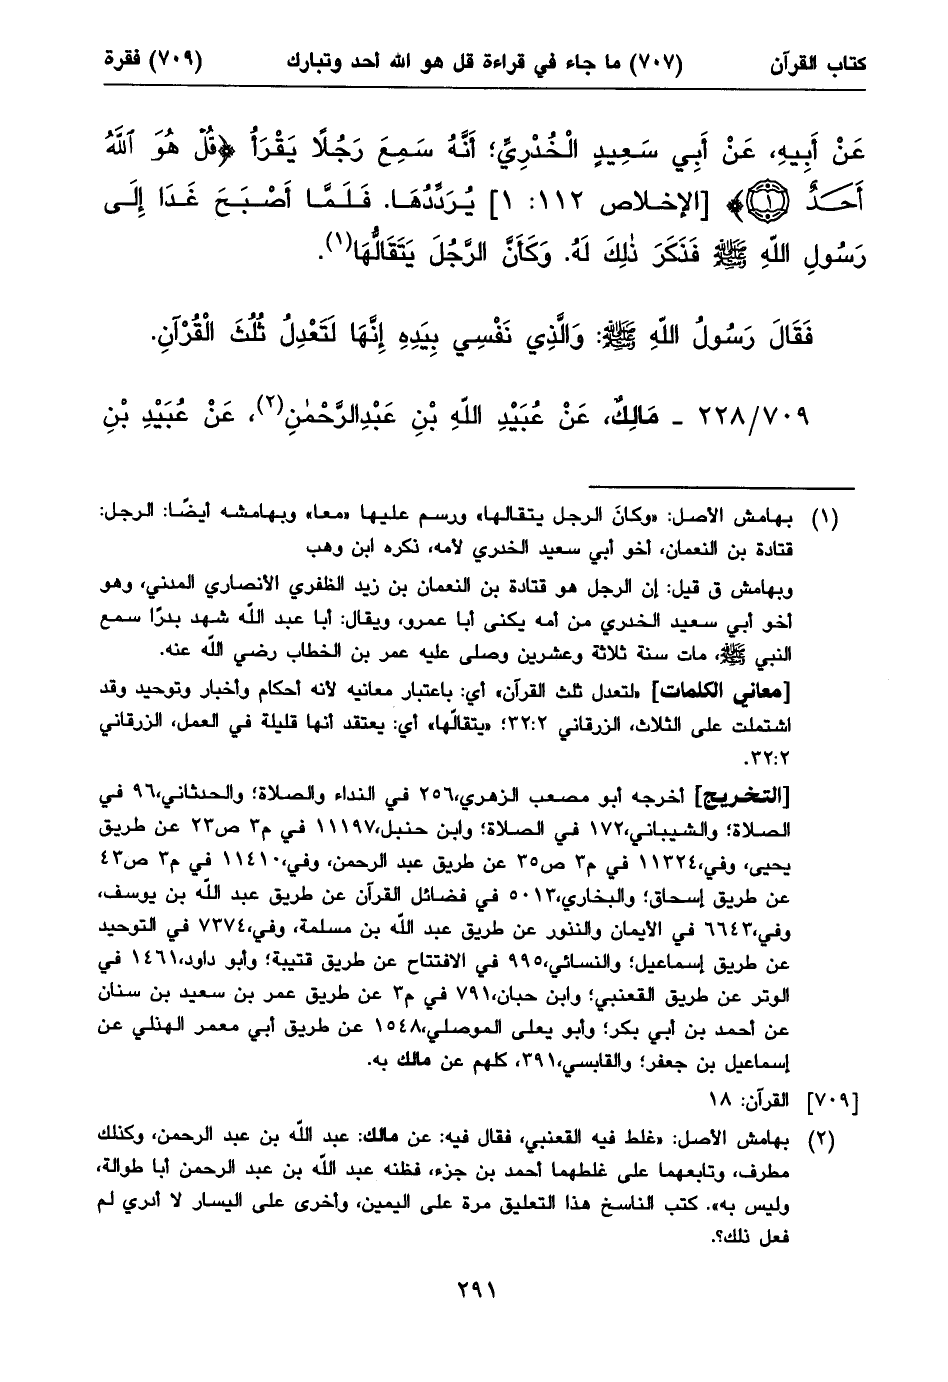 كتاب القرآن (٧٠٧) ما جاء في قراءة قل هو الله أحد وتبارك (٧٠٩) فقرة
عَنْ أَبِيهِ، عَنْ أَبِي سَعِيدٍ الْخُدْرِيِّ؛ أَنَّهُ سَمِعَ رَجُلًا يَقْرَأُ ﴿قُلْ هُوَ ٱللَّهُ
أَحَدٌ ۝١﴾ [الإخلاص ١١٢: ١] يُرَدِّدُهَا. فَلَمَّا أَصْبَحَ غَدَا إِلَى
رَسُولِ اللّهِ ﷺ فَذَكَرَ ذٰلِكَ لَهُ. وَكَأَنَّ الرَّجُلَ يَتَقَالُّهَا(١).
فَقَالَ رَسُولُ اللّهِ ﷺ: وَالَّذِي نَفْسِي بِيَدِهِ إِنَّهَا لَتَعْدِلُ ثُلُثَ الْقُرْآنِ.
٢٢٨/٧٠٩ - مَالِكٌ، عَنْ عُبَيْدِ اللّهِ بْنِ عَبْدِالرَّحْمٰنِ(٢)، عَنْ عُبَيْدِ بْنِ
(١) بهامش الأصل: «وكانَ الرجل يتقالها» ورسم عليها «معا» وبهامشه أيضًا: الرجل:
قتادة بن النعمان، أخو أبي سعيد الخدري لأمه، نكره ابن وهب
وبهامش ق قيل: إن الرجل هو قتادة بن النعمان بن زيد الظفري الأنصاري المدني، وهو
أخو أبي سعيد الخدري من أمه يكنى أبا عمرو، ويقال: أبا عبد اللّه شهد بدرًا سمع
النبي ﷺ، مات سنة ثلاثة وعشرين وصلى عليه عمر بن الخطاب رضي اللّه عنه.
[معاني الكلمات] «لتعدل ثلث القرآن» أي: باعتبار معانيه لأنه أحكام وأخبار وتوحيد وقد
اشتملت على الثلاث، الزرقاني ٣٢:٢؛ «يتقالّها» أي: يعتقد أنها قليلة في العمل، الزرقاني
٣٢:٢.
[التخريج] أخرجه أبو مصعب الزهري،٢٥٦ في النداء والصلاة؛ والحدثاني،٩٦ في
الصلاة؛ والشيباني،١٧٢ في الصلاة؛ وابن حنبل،١١١٩٧ في م٣ ص٢٣ عن طريق
يحيى، وفي،١١٣٢٤ في م٣ ص٣٥ عن طريق عبد الرحمن، وفي،١١٤١٠ في م٣ ص٤٣
عن طريق إسحاق؛ والبخاري،٥٠١٣ في فضائل القرآن عن طريق عبد اللّه بن يوسف،
وفي،٦٦٤٣ في الأيمان والنذور عن طريق عبد اللّه بن مسلمة، وفي،٧٣٧٤ في التوحيد
عن طريق إسماعيل؛ والنسائي،٩٩٥ في الافتتاح عن طريق قتيبة؛ وأبو داود،١٤٦١ في
الوتر عن طريق القعنبي؛ وابن حبان،٧٩١ في م٣ عن طريق عمر بن سعيد بن سنان
عن أحمد بن أبي بكر؛ وأبو يعلى الموصلي،١٥٤٨ عن طريق أبي معمر الهذلي عن
إسماعيل بن جعفر؛ والقابسي،٣٩١، كلهم عن مالك به.
[٧٠٩] القرآن: ١٨
(٢) بهامش الأصل: «غلط فيه القعنبي، فقال فيه: عن مالك: عبد اللّه بن عبد الرحمن، وكذلك
مطرف، وتابعهما على غلطهما أحمد بن جزء، فظنه عبد اللّه بن عبد الرحمن أبا طوالة،
وليس به». كتب الناسخ هذا التعليق مرة على اليمين، وأخرى على اليسار لا أدري لم
فعل ذلك؟.
٢٩١